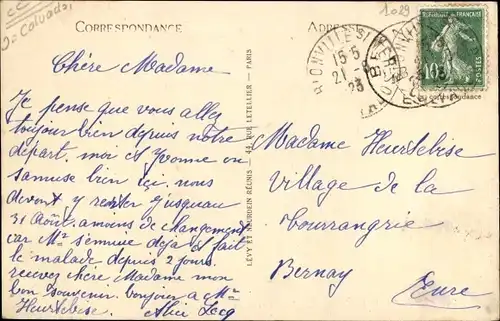 CORRESPONDANCE
ADRESSE
1029
Calvados
RÉPUBLIQUE FRANÇAISE
10
POSTES
15-5
21
23
correspondance
Chère Madame
Je pense que vous allez
toujour bien depuis notre
départ, moi et Yvonne on
samuse bien içi, nous
devont y rester jusquau
31 Août, amoins de changement
car Mr sennuie deja et fait
le malade depuis 2 jours.
recevez chère Madame mon
bon souvenir. bonjour a Mr
Heurtebise. Alice Lecq
LÉVY ET NEURDEIN RÉUNIS, 44, RUE LETELLIER - PARIS
Madame Heurtebise
Village de la
Courrangrie
Bernay
Eure